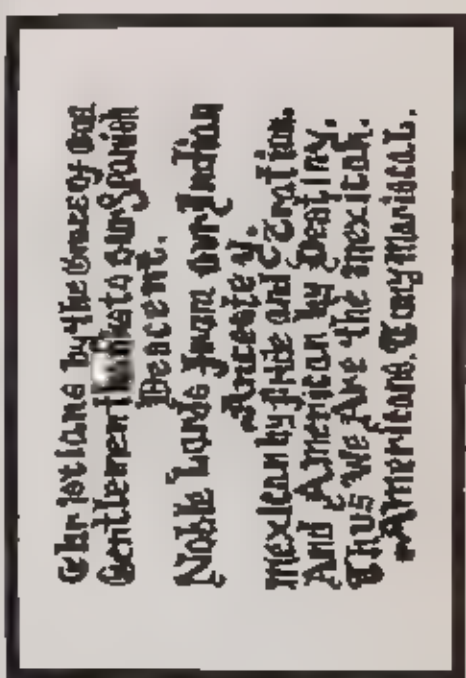 Christians by the Grace of God
Gentlemen to our Spanish
Descent.
Noble Lords from our Indian
Ancestry.
Mexican by Pride and
And American by Destiny.
Thus We Are the Mexican.
-Americans. Tony Mariscal.